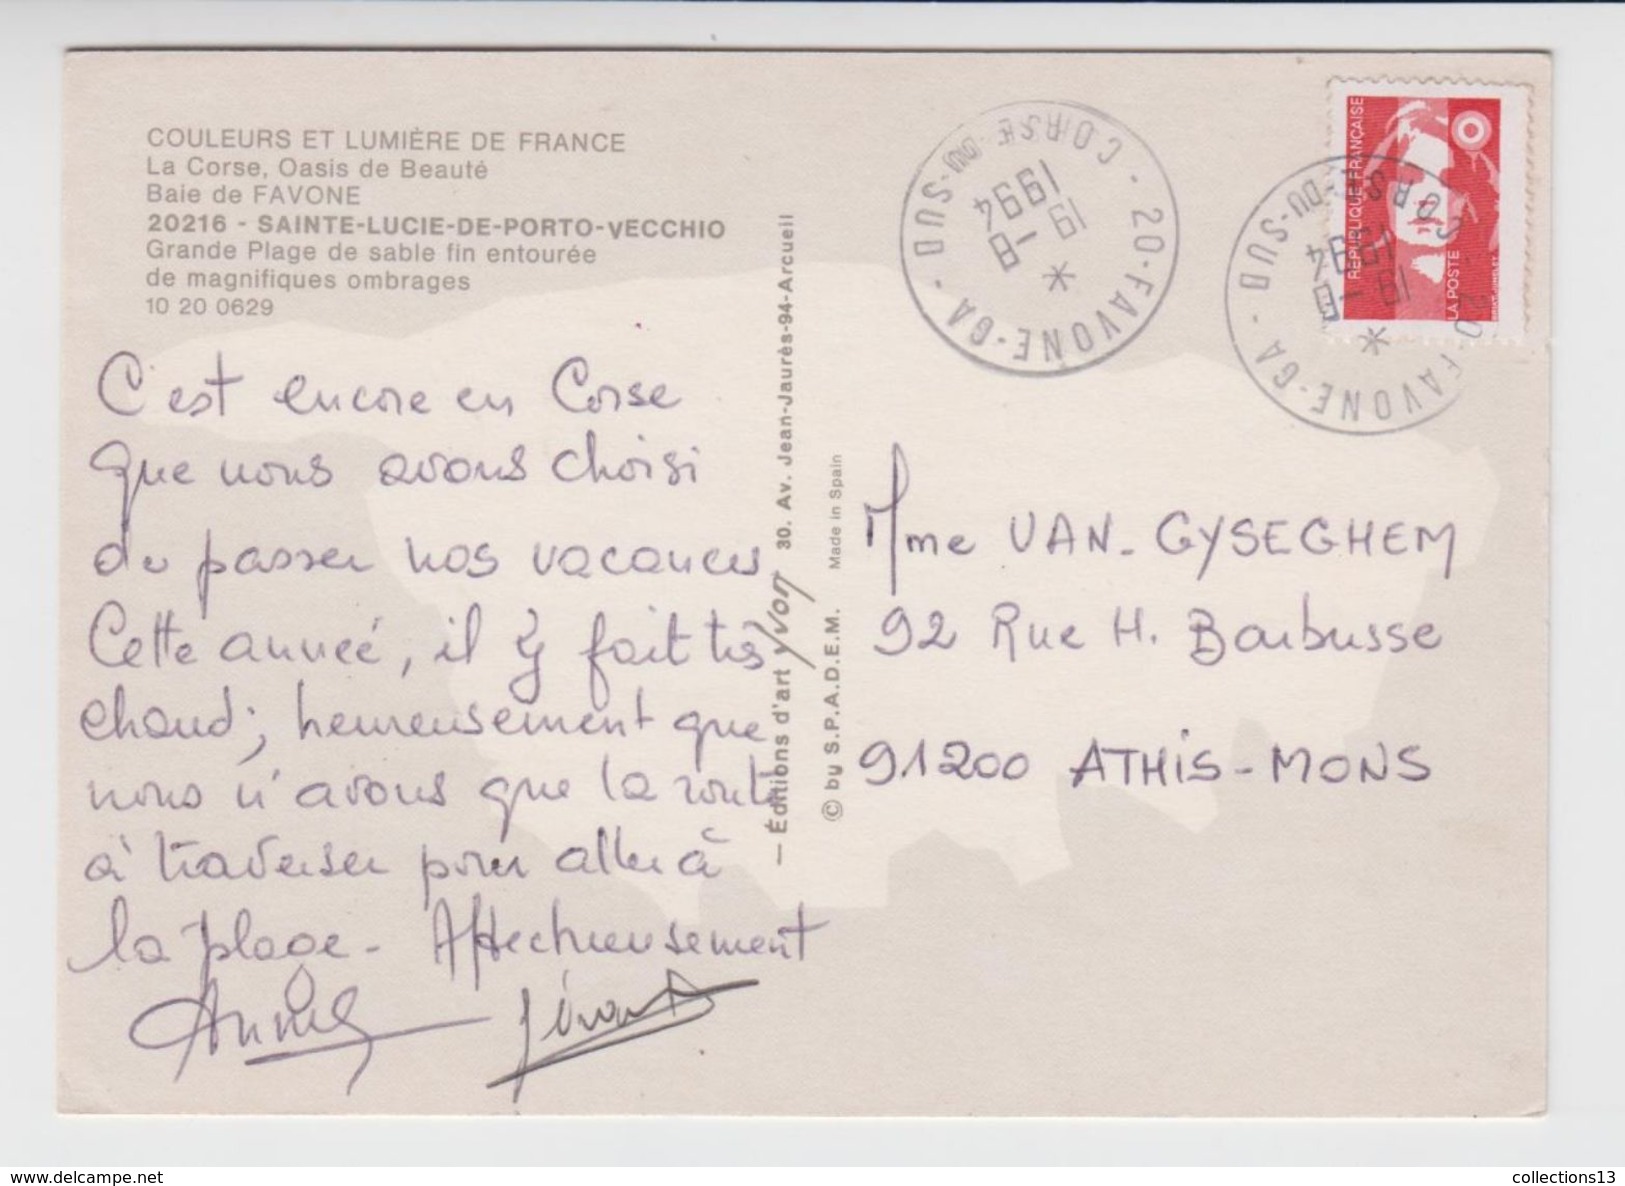 COULEURS ET LUMIÈRE DE FRANCE
La Corse, Oasis de Beauté
Baie de FAVONE
20216 - SAINTE-LUCIE-DE-PORTO-VECCHIO
Grande Plage de sable fin entourée
de magnifiques ombrages
10 20 0629
C'est encore en Corse
que nous avons choisi
de passer nos vacances
Cette année, il y fait très
chaud; heureusement que
nous n'avons que la route
à traverser pour aller à
la plage - Affectueusement
Annick Gérard
— Éditions d'art YVON 30. Av. Jean-Jaurès-94-Arcueil
© by S.P.A.D.E.M. Made in Spain
20-FAVONE-GA - CORSE-DU-SUD -
19-8
1994
*
RÉPUBLIQUE FRANÇAISE
LA POSTE
20-FAVONE-GA - CORSE-DU-SUD
19-8
1994
*
Mme VAN-GYSEGHEM
92 Rue H. Barbusse
91200 ATHIS-MONS
collections13